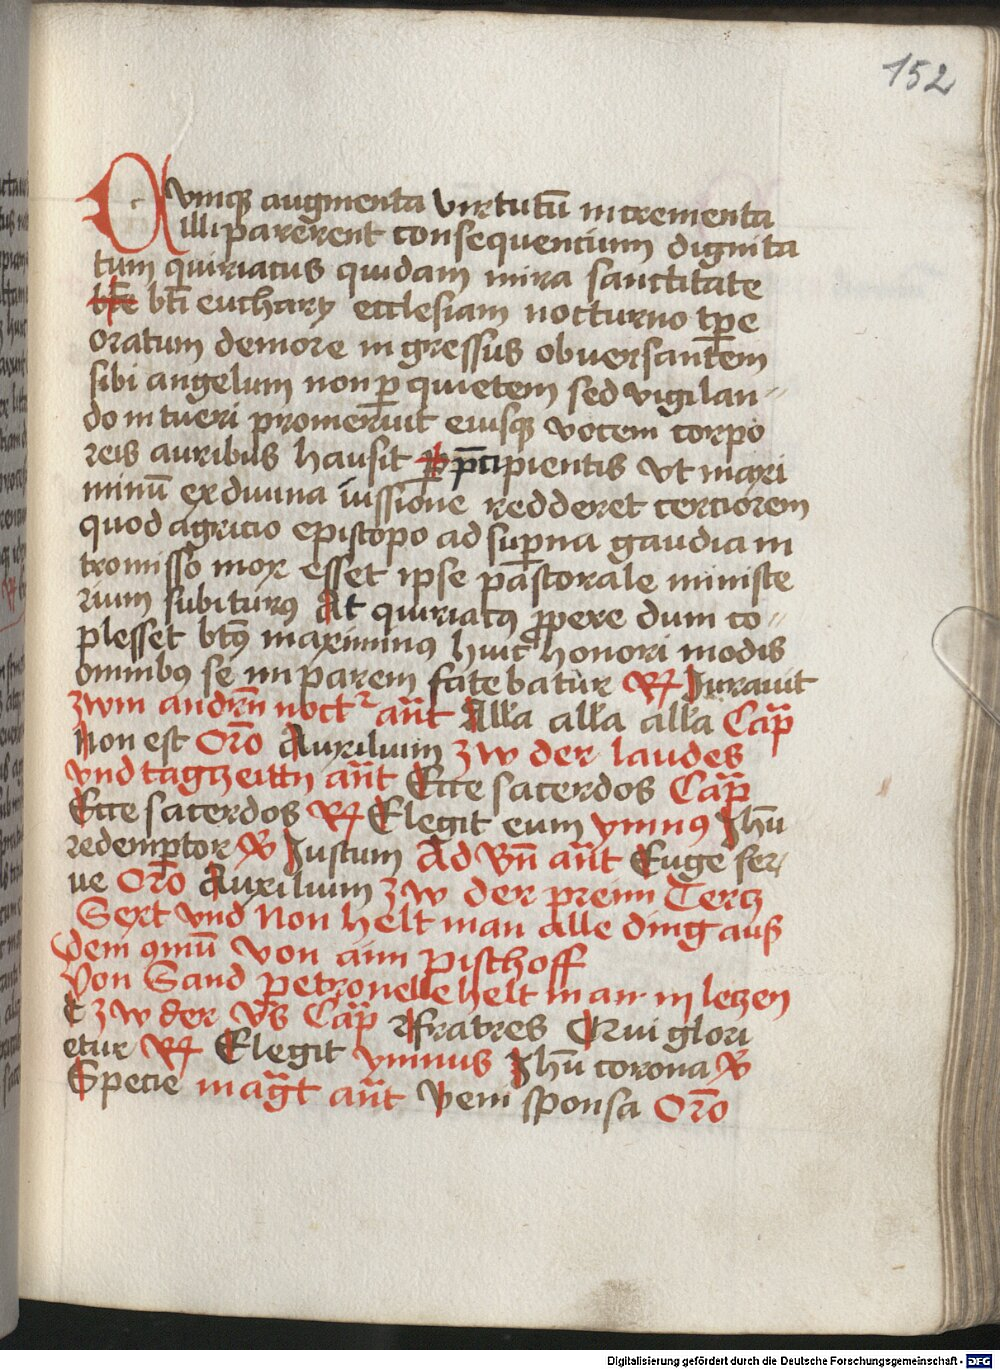 152
Cvmq̄ augmenta virtutū incrementa
illi parerent consequencium dignita
tum quiriacus quidam mira sanctitate
btī euchary ecclesiam nocturno tp̄e
oratum de more ingressus obuersantem
sibi angelum non p̱ quietem sed vigilan
do intueri promeruit eiusq̄ vocem corpo
reis auribus hausit p̄cipientis vt maxi
minū ex diuina iussione redderet cerciorem
quod agricio episcopo ad sup̱na gaudia in
tromisso mox esset ipse pastorale ministe
rium subiturꝰ At quiriacꝰ ꝓpere dum co
plesset btꝰ maximinꝰ huic honori modis
omnibꝰ se imparem fatebatur R Iurauit
zwm andrn̄ noctꝛ an̄t Alla alla alla Cap̄
Non est Orō Auxilium zw der laudes
vnd tagzeittn an̄t Ecce sacerdos Cap̄
Ecce sacerdos R Elegit eum ymnꝰ Ihū
redemptor V Iustum Ad Bn̄ an̄t Euge ser
ue Orō Auxilium zw der preim Tercz
Sext vnd Non helt man alle ding aus
dem ꝯmū von aim pischoff
Von Sand petronelle helt man in leczen
zw der vs̄ Cap̄ fratres Qui glori
etur R Elegit ymnus Ihū corona V
Specie mag̅t an̄t Veni sponsa Orō
Digitalisierung gefördert durch die Deutsche Forschungsgemeinschaft - DFG